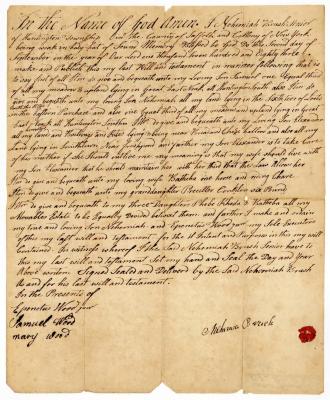 In the Name of God Amen. I Nehemiah Brush Senior
of Huntington Township and the County of Suffolk and Collony of New York
being weak in body but of Sound Memory Blessed be God Do the Second day of
September in the year of our Lord one thousand hundred and Eighty three
make and Publish this my last Will and testament in manner following that is
to say first of all I give and bequeath unto my Loving Son Samuel one Equal third
of all my meadow & upland lying in Great East Neck at Huntington South also I
give and bequeath unto my loving Son Nehemiah all my land lying in the
Eastern Purchase and also one Equal third of all my meadow and upland lying in Great
East Neck at Huntington South Item I give and bequeath unto my Loving Son Alexander
all my land and lying & being near and also all my
land lying in Smithtown Near and farther my Son Alexander is to take Care
of his mother if She Should outlive me my meaning is that my wife Should live with
my Son Alexander that he Shall maintain her
Item I give and bequeath unto my loving wife one horse and riding Chare
Item I give and bequeath unto my granddaughter Conkling six Pound
Item I give and bequeath to my three Daughters all my
Moveable Estate to be Equally Devided between them and farther I make and ordain
my true and loving Son Nehemiah and Epenetus Wood my Sole Executors
of this my last will and testament for the Intent and Purpose in this my will
Contained In witness whereof I the Said Nehemiah Brush Senior have to
this my last will and testament Set my hand and Seal the Day and Year
Above written Signed Sealed and Delivered by the Said Nehemiah Brush
as and for his last will and testament
In the Presents of
Epenetus Wood Jur
Samuel Wood
mary Wood
Nehemiah Brush